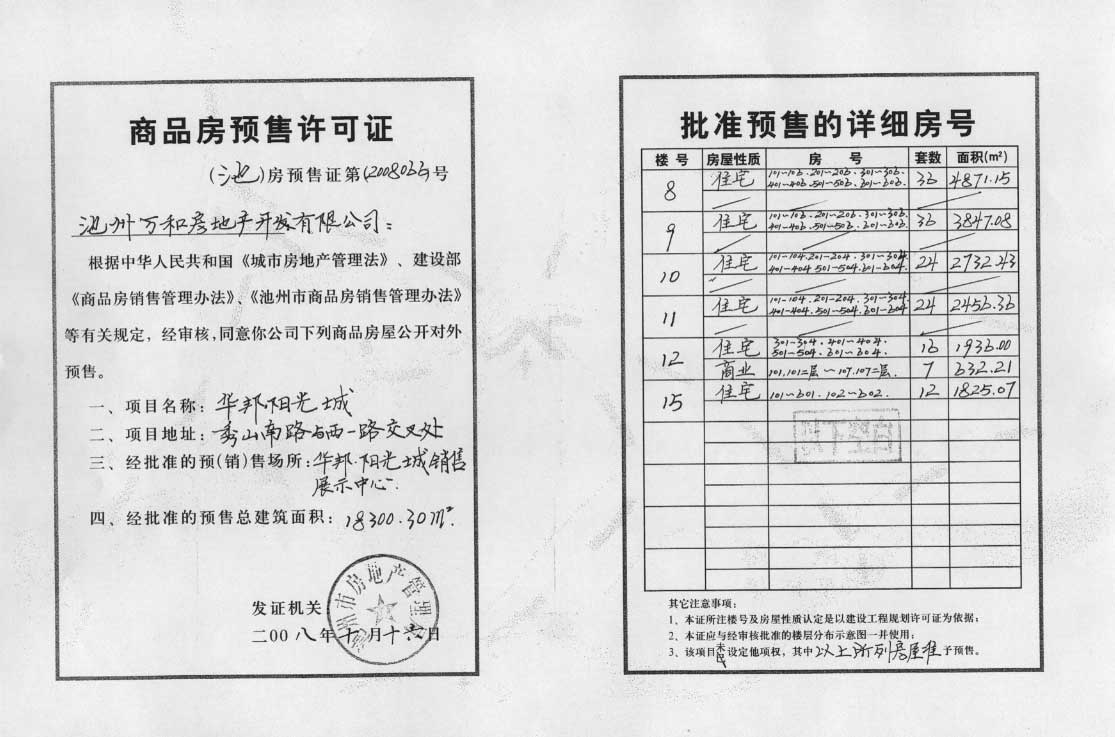 商品房预售许可证
(池)房预售证第号
池州万和房地产开发有限公司：
根据中华人民共和国《城市房地产管理法》、建设部
《商品房销售管理办法》、《池州市商品房销售管理办法》
等有关规定，经审核，同意你公司下列商品房屋公开对外
预售。
一、项目名称：华邦.阳光城
二、项目地址：秀山南路与西一路交叉处
三、经批准的预(销)售场所：华邦.阳光城销售
展示中心.
四、经批准的预售总建筑面积：18300.30m².
池州市房地产管理
发证机关
二00八年十月十六日
批准预售的详细房号
楼 号 房屋性质 房 号 套数 面积(m²)
8 住宅 101~106.201~206.301~306. 36 4871.15
401~406.501~506.601~606.
9 住宅 101~106.201~206.301~306. 36 3847.08
401~406.501~506.601~606.
10 住宅 101~104.201~204.301~304. 24 2732.43
401~404.501~504.601~604.
11 住宅 101~104.201~204.301~304. 24 2456.36
401~404.501~504.601~604
12 住宅 301~304.401~404. 16 1936.00
501~504.601~604.
商业 101.101二层~107.107二层. 7 632.21
15 住宅 101~601.102~602. 12 1825.07
以下空白
其它注意事项：
1、本证所注楼号及房屋性质认定是以建设工程规划许可证为依据；
2、本证应与经审核批准的楼层分布示意图一并使用；
3、该项目未设定他项权，其中以上所列房屋准予预售。